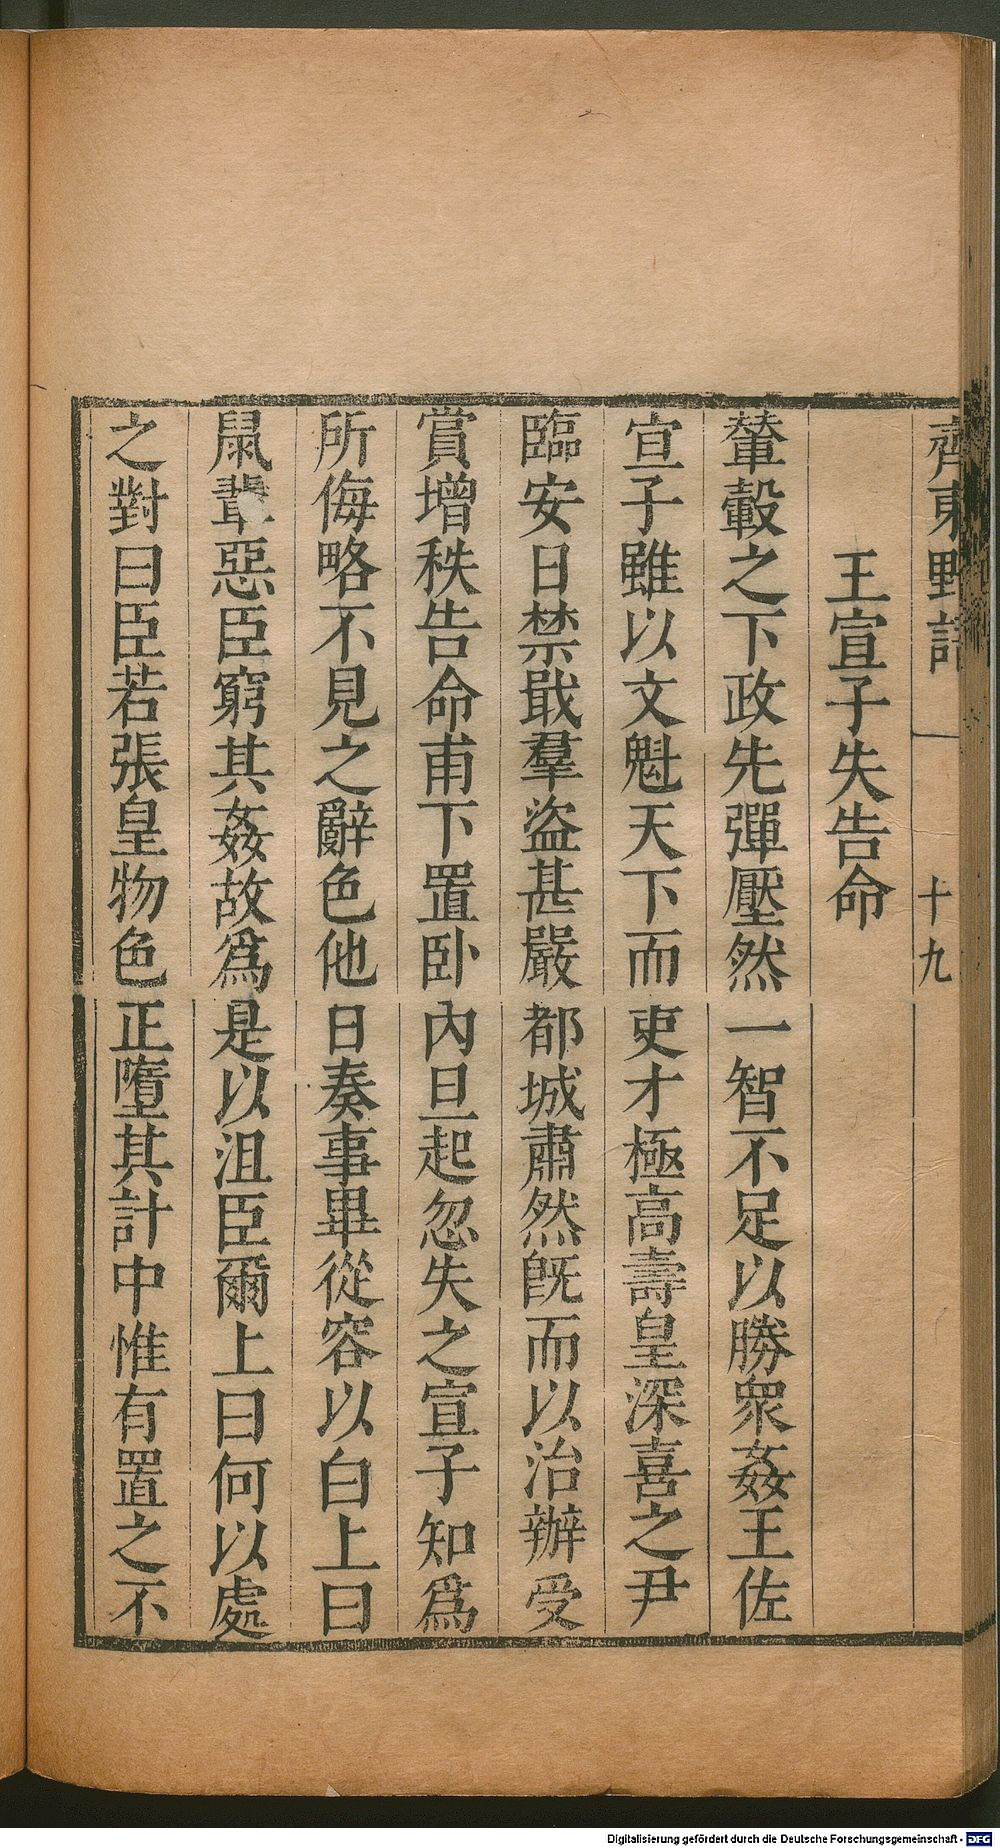 齊東野語
十九
王宣子失告命
輦轂之下政先彈壓然一智不足以勝衆姦王佐
宣子雖以文魁天下而吏才極高壽皇深喜之尹
臨安日禁戢羣盜甚嚴都城肅然既而以治辦受
賞增秩告命甫下置卧內旦起忽失之宣子知爲
所侮略不見之辭色他日奏事畢從容以白上曰
鼠輩惡臣窮其姦故爲是以沮臣爾上曰何以處
之對曰臣若張皇物色正墮其計中惟有置之不
Digitalisierung gefördert durch die Deutsche Forschungsgemeinschaft - DFG